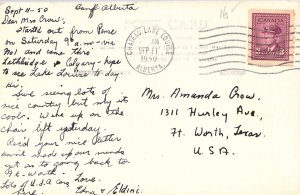 Sept 11-50
Banff Alberta
Dear Mrs Crow:
Started out from Pense
on Saturday 9 a.m. via
No 1 and came thro'
Lethbridge & Calgary - hope
to see Lake Louise to-day.
We're seeing lots of
nice country but my it is
cool. Woke up on the
chair lift yesterday.
And your nice letter
made up our minds
yet as to going back to
Ft. Worth.
Lots of Love
Edna &
16
CHATEAU LAKE LOUISE
SEP 11
1950
ALBERTA
Mrs. Amanda Crow,
1311 Hurley Ave,
Ft. Worth, Texas.
U.S.A.